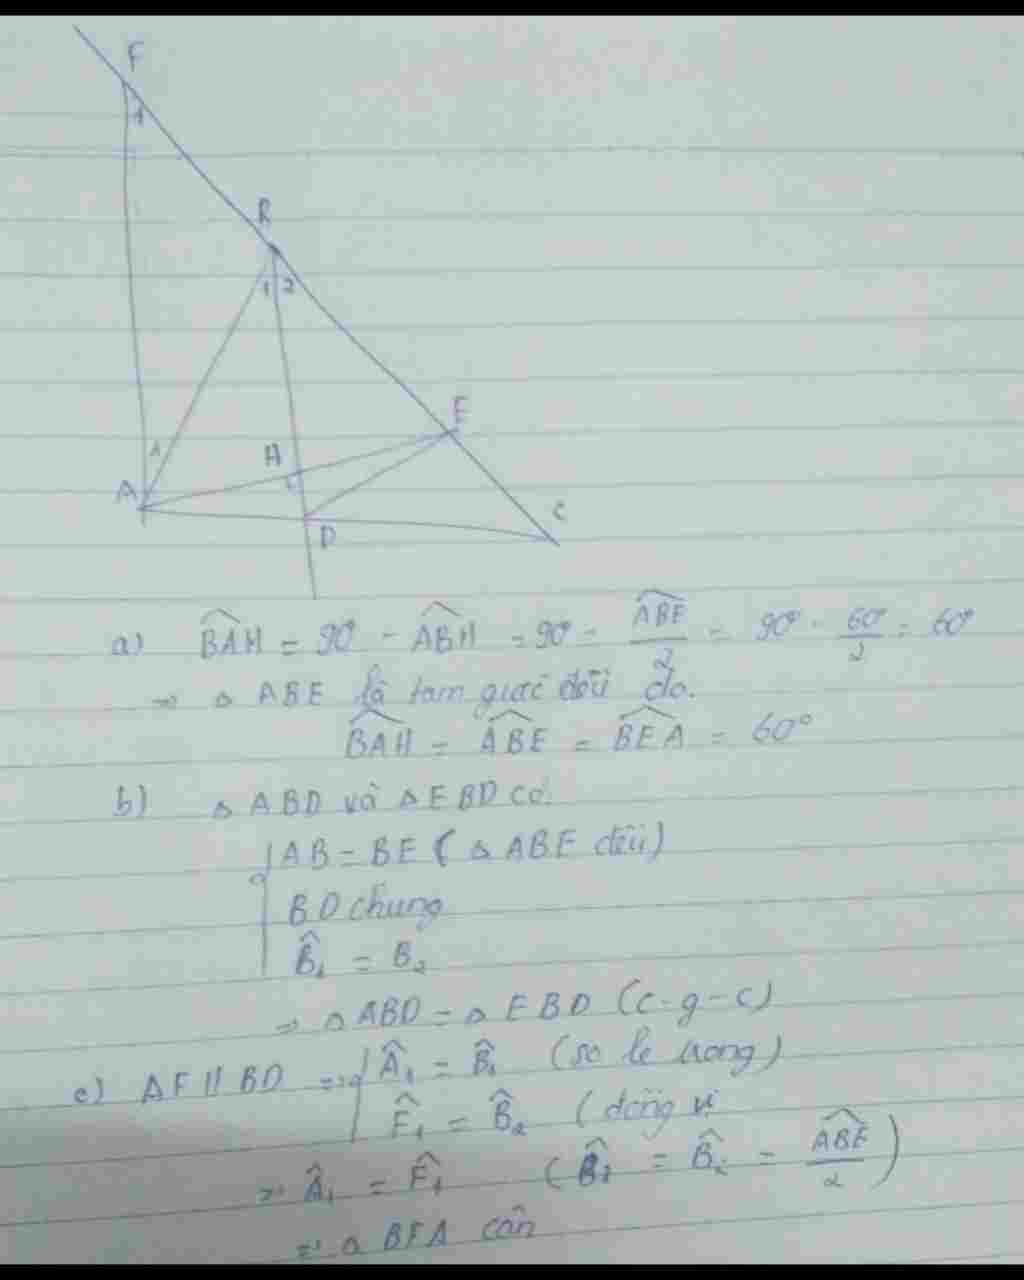 F
1
B
1 2
E
H
A
1
C
D
a) $\widehat{BAH}$ = 90° - $\widehat{ABH}$ = 90° - $\frac{\widehat{ABE}}{2}$ = 90° - $\frac{60°}{2}$ = 60°
⇒ △ ABE là tam giác đều do.
$\widehat{BAH}$ = $\widehat{ABE}$ = $\widehat{BEA}$ = 60°
b) △ ABD và △ EBD có:
AB = BE ( △ ABE đều)
BD chung
$\hat{B}_1$ = B₂
⇒ △ ABD = △ EBD (c-g-c)
c) AF // BD ⇒ $\hat{A}_1$ = $\hat{B}_1$ (so le trong)
$\hat{F}_1$ = $\hat{B}_2$ (đồng vị
⇒ $\hat{A}_1$ = $\hat{F}_1$ ( $\hat{B}_1$ = $\hat{B}_2$ = $\frac{\widehat{ABE}}{2}$ )
⇒ △ BFA cân